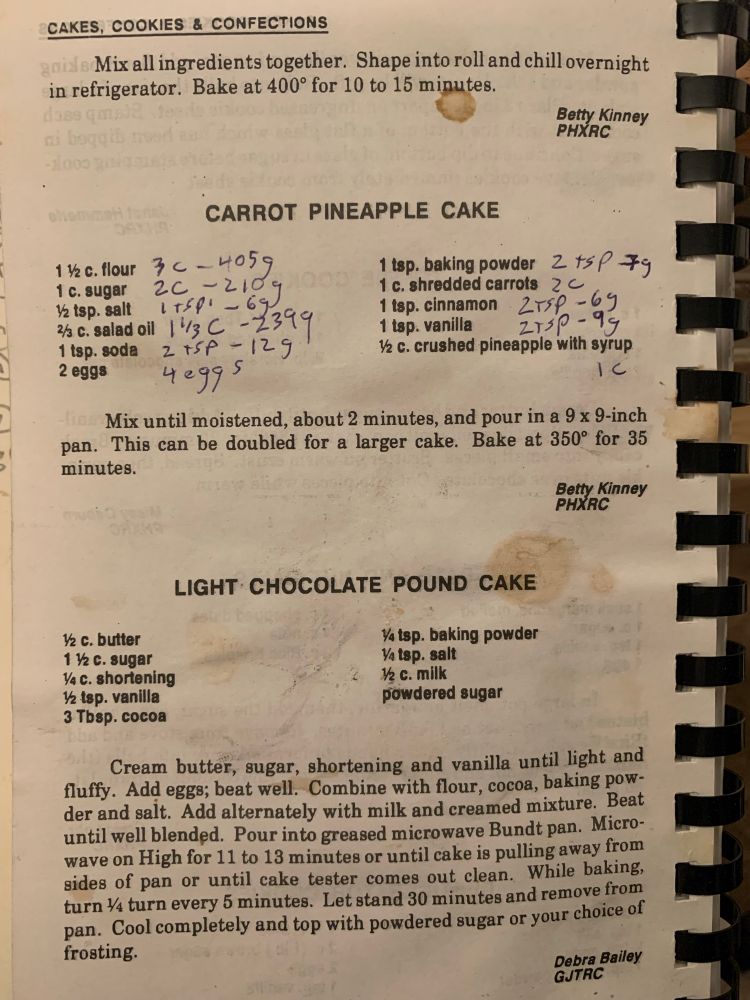 CAKES, COOKIES & CONFECTIONS
Mix all ingredients together. Shape into roll and chill overnight
in refrigerator. Bake at 400° for 10 to 15 minutes.
Betty Kinney
PHXRC
CARROT PINEAPPLE CAKE
1 ½ c. flour 3 C - 405g
1 c. sugar 2C - 210g
½ tsp. salt 1 tsp. - 6g
⅔ c. salad oil 1 1/3 C - 239g
1 tsp. soda 2 tsp - 12g
2 eggs 4 eggs
1 tsp. baking powder 2 tsp - 7g
1 c. shredded carrots 2C
1 tsp. cinnamon 2 tsp - 6g
1 tsp. vanilla 2 tsp - 9g
½ c. crushed pineapple with syrup
1C
Mix until moistened, about 2 minutes, and pour in a 9 x 9-inch
pan. This can be doubled for a larger cake. Bake at 350° for 35
minutes.
Betty Kinney
PHXRC
LIGHT CHOCOLATE POUND CAKE
½ c. butter
1 ½ c. sugar
¼ c. shortening
½ tsp. vanilla
3 Tbsp. cocoa
¼ tsp. baking powder
¼ tsp. salt
½ c. milk
powdered sugar
Cream butter, sugar, shortening and vanilla until light and
fluffy. Add eggs; beat well. Combine with flour, cocoa, baking pow-
der and salt. Add alternately with milk and creamed mixture. Beat
until well blended. Pour into greased microwave Bundt pan. Micro-
wave on High for 11 to 13 minutes or until cake is pulling away from
sides of pan or until cake tester comes out clean. While baking,
turn ¼ turn every 5 minutes. Let stand 30 minutes and remove from
pan. Cool completely and top with powdered sugar or your choice of
frosting.
Debra Bailey
GJTRC